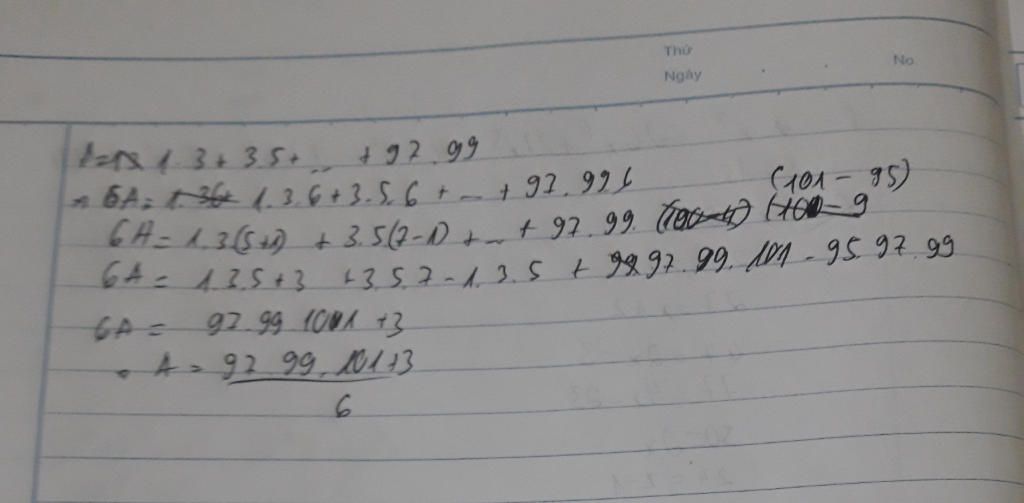 Thứ
Ngày
No
A = 1.3 + 3.5 + ... + 97.99
6A = 1.3.6 + 3.5.6 + ... + 97.99.6
(101 - 95)
6A = 1.3(5+1) + 3.5(7-1) + ... + 97.99.
6A = 1.3.5+3 + 3.5.7 - 1.3.5 + 97.99.101 - 95.97.99
6A = 97.99.101 + 3
A = 97.99.101+3
6